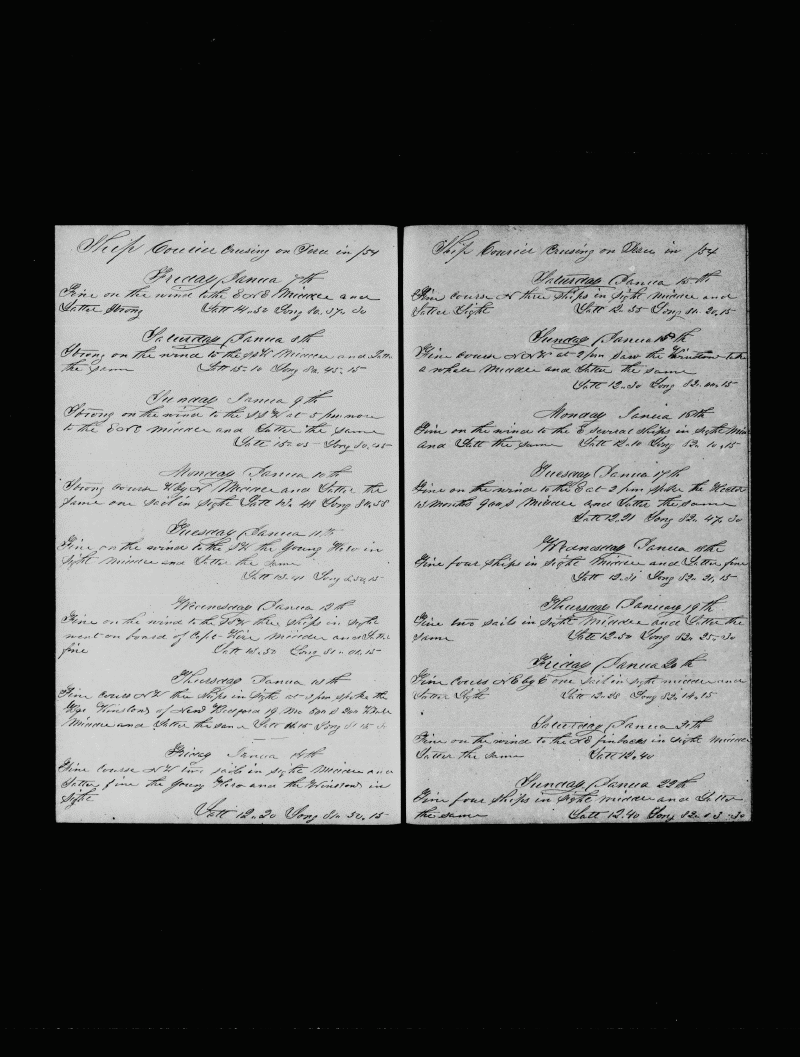 Ship Courier Crusing on Peru in /54
Friday Janua 7th
Fine on the wind to the E and E Middle and
Latter Strong Latt 14.50 Long 80.37.30
Saturday Janua 8th
Strong on the wind to the SW Middle and Latt
the same Latt 15.10 Long 80.45.15
Sunday Janua 9th
Strong on the wind to the SSW at 5 pm more
to the E and E Middle and Latter the same
Latt 15.05 Long 80.45
Monday Janua 10th
Strong course W by N Middle and Latter the
same one sail in sight Latt 14.48 Long
Tuesday Janua 11th
Fine on the wind to the SW the Young Hero in
sight Middle and Latter the same
Latt 13.41 Long
Wednesday Janua 12th
Fine on the wind to the SSW three ships in sight
went on board of Capt Middle and Latter
fine Latt 13.50 Long 81.01.15
Thursday Janua 13th
Fine course NW three ships in sight at 2 pm spoke the
of New Bedford 19 Mo
Middle and Latter the same Latt Long 81.15
Friday Janua 14th
Fine course NW two sails in sight Middle and
Latter fine the Young Hero and the Winslow in
sight
Latt 12.20 Long 81.30.15
Ship Courier Crusing on Peru in /54
Saturday Janua 15th
Fine course N three ships in sight Middle and
Latter Light Latt 12.55 Long 81.20.15
Sunday Janua
Fine course NNW at 2 pm saw the Winslow take
a whale Middle and Latter the same
Latt 12.30 Long 82.00.15
Monday Janua 16th
Fine on the wind to the E several ships in sight Midd
and Latt the same Latt 12.10 Long 82.10.15
Tuesday Janua 17th
Fine on the wind to the E at 2 pm spoke the Hector
months Middle and Latter the same
Latt 12.21 Long 82.47.30
Wednesday Janua 18th
Fine four ships in sight Middle and Latter fine
Latt 12.31 Long 82.21.15
Thursday January 19th
Fine two sails in sight Middle and Latter the
same Latt 12.50 Long 82.25.30
Friday Janua 20th
Fine course N E by E one sail in sight middle and
Latter Light Latt 12.28 Long 82.14.15
Saturday Janua 21th
Fine on the wind to the NE finbacks in sight Middle
Latter the same Latt 12.40
Sunday Janua 22th
Fine four ships in sight middle and Latter
the same Latt 12.40 Long 82